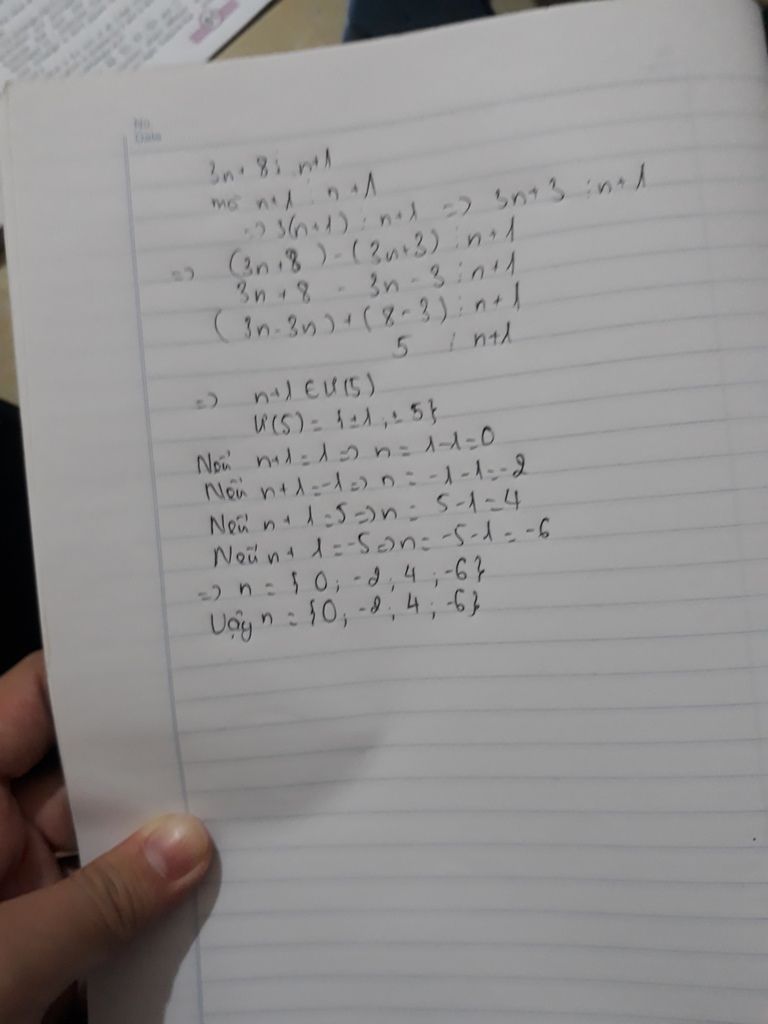 No
Date
3n+8 ⋮ n+1
mà n+1 ⋮ n+1
=> 3(n+1) ⋮ n+1 => 3n+3 ⋮ n+1
=> (3n+8) - (3n+3) ⋮ n+1
3n+8 - 3n-3 ⋮ n+1
(3n-3n)+(8-3) ⋮ n+1
5 ⋮ n+1
=> n+1 ∈ Ư(5)
Ư(5) = {±1, ±5}
Nếu n+1=1 => n = 1-1=0
Nếu n+1=-1 => n = -1-1=-2
Nếu n+1=5 => n = 5-1=4
Nếu n+1=-5 => n= -5-1=-6
=> n = {0; -2; 4; -6}
Vậy n = {0; -2; 4; -6}